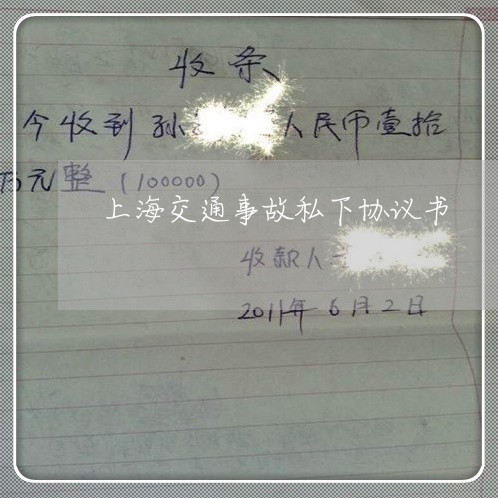 收条
今收到孙 人民币壹拾
万元整（100000）
上海交通事故私下协议书
收款人
2011年6月2日